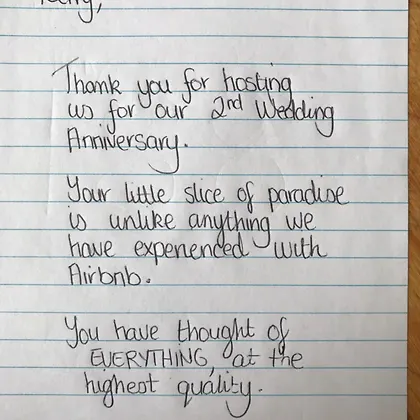 Thank you for hosting
us for our 2nd Wedding
Anniversary.
Your little slice of paradise
is unlike anything we
have experienced with
Airbnb.
You have thought of
EVERYTHING, at the
highest quality.